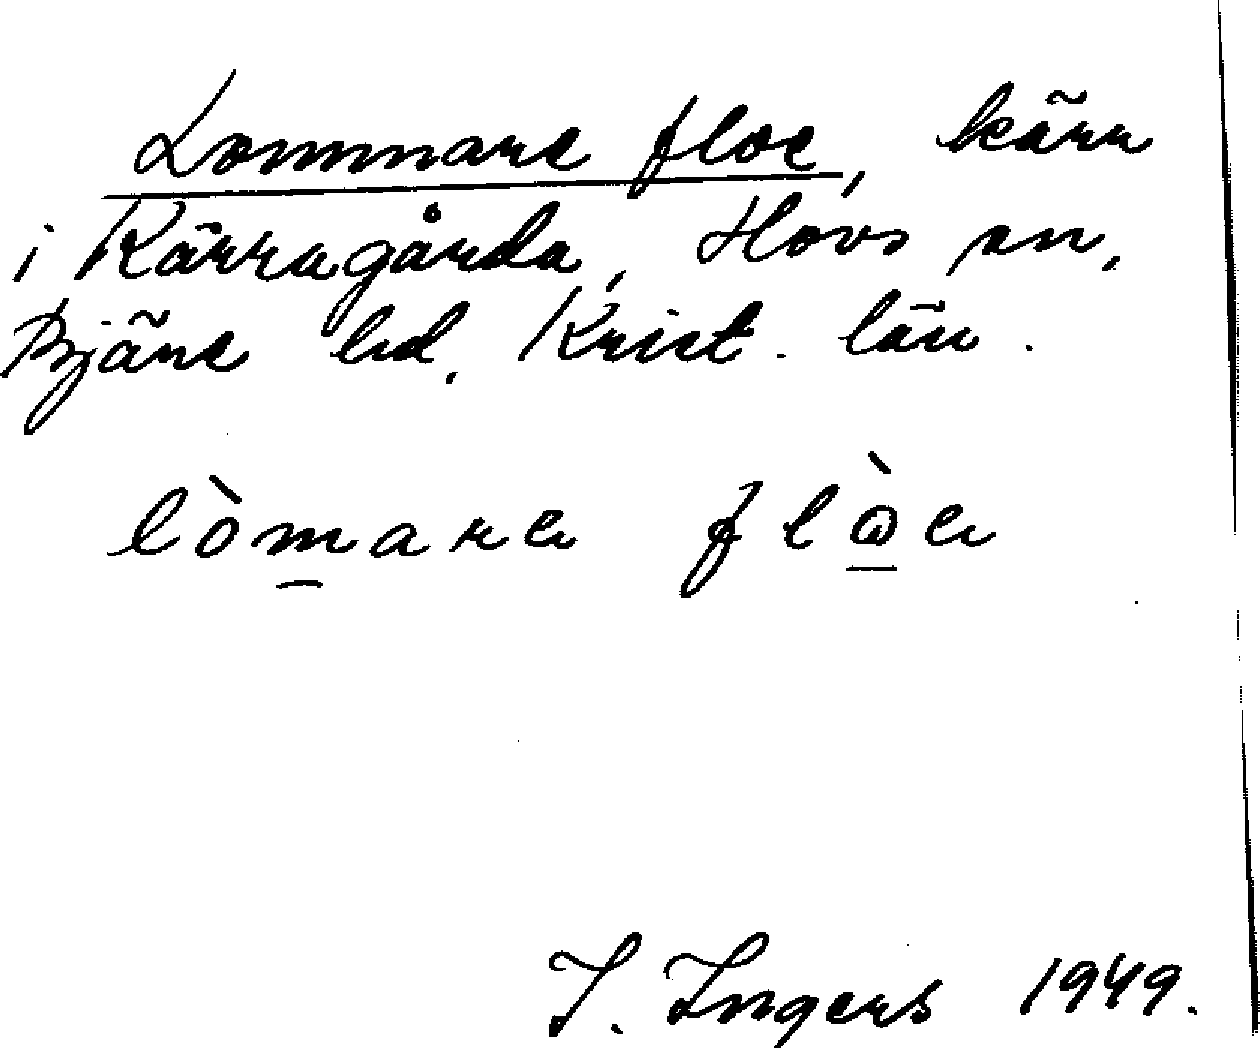 Lommare floe, kärr
i Kärragårda, Hovs sn,
Bjäre hd, Krist. län.
lòmare flòe
I. Ingers 1949.